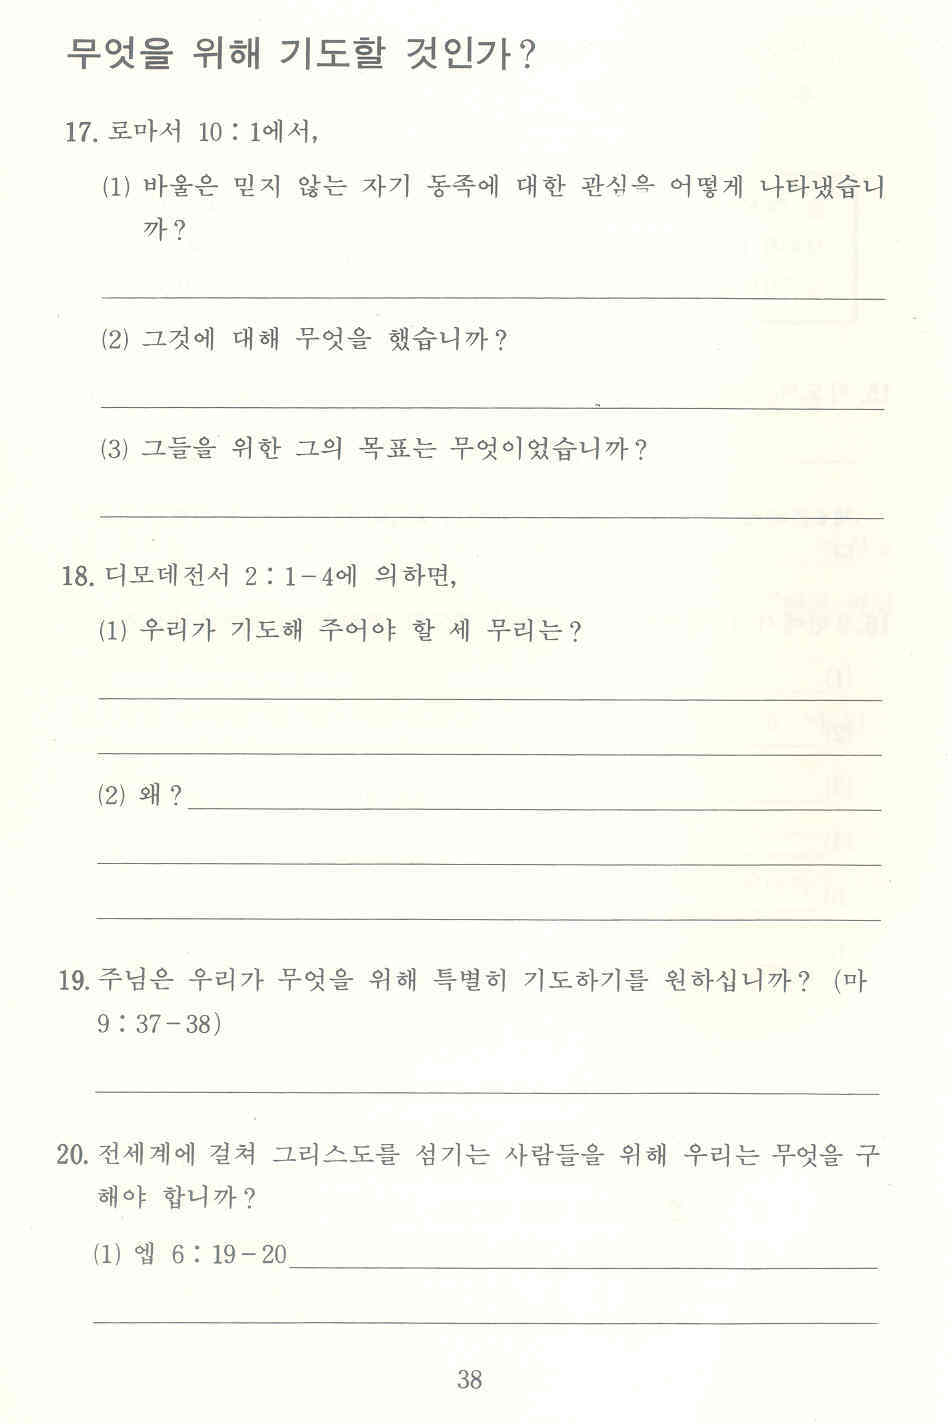 무엇을 위해 기도할 것인가?
17. 로마서 10 : 1에서,
(1) 바울은 믿지 않는 자기 동족에 대한 관심을 어떻게 나타냈습니
까?
(2) 그것에 대해 무엇을 했습니까?
(3) 그들을 위한 그의 목표는 무엇이었습니까?
18. 디모데전서 2 : 1-4에 의하면,
(1) 우리가 기도해 주어야 할 세 무리는?
(2) 왜?
19. 주님은 우리가 무엇을 위해 특별히 기도하기를 원하십니까? (마
9 : 37-38)
20. 전세계에 걸쳐 그리스도를 섬기는 사람들을 위해 우리는 무엇을 구
해야 합니까?
(1) 엡 6 : 19-20
38